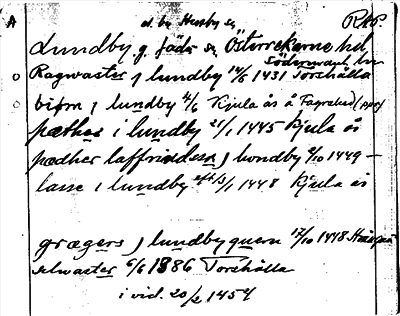 A d. b. Husby sn RAP.
Lundby g. Jäders sn Österrekarne hd
Södermanl. län
Ragwaster j lundby 14/5 1431 Torshälla
biørn j lundby 4/6 Kjula ås å Fagerlid (papr)
pæthær i lundby 21/1 1445 Kjula ås
pædher laffrindzsson j lwndby 9/10 1449 —
lasse i lundby eft 13/1 1448 Kjula ås
græghers j lundby quern 17/10 1448
selwaster 6/6 1386 Torshälla
i vid. 20/2 1454